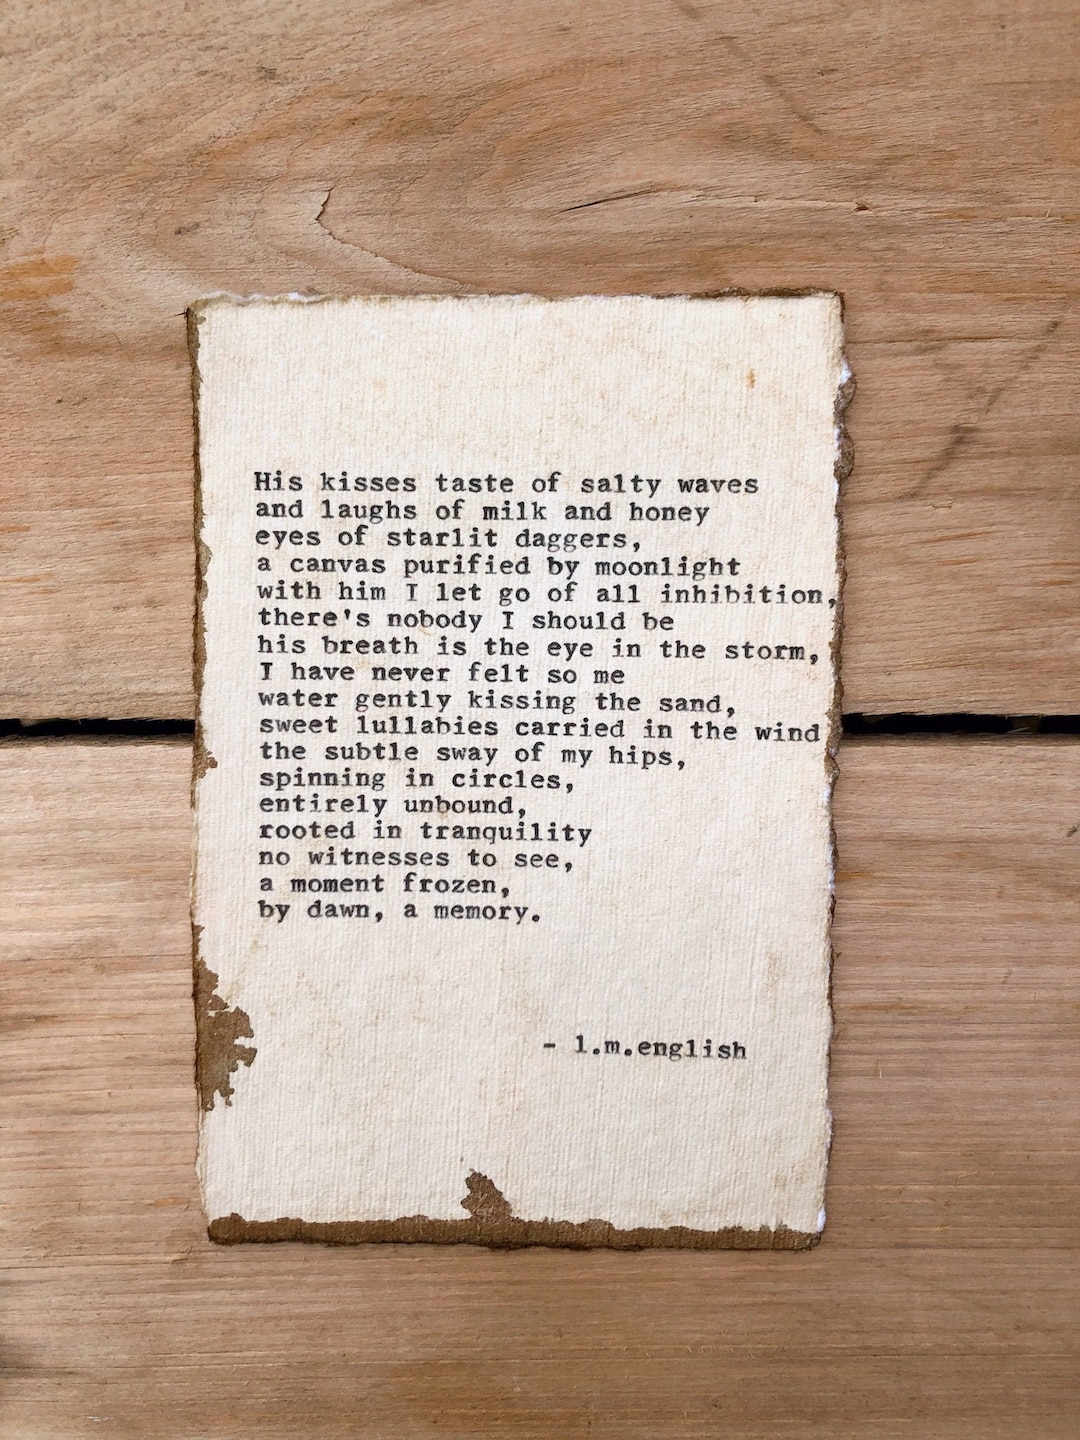 His kisses taste of salty waves
and laughs of milk and honey
eyes of starlit daggers,
a canvas purified by moonlight
with him I let go of all inhibition,
there's nobody I should be
his breath is the eye in the storm,
I have never felt so me
water gently kissing the sand,
sweet lullabies carried in the wind
the subtle sway of my hips,
spinning in circles,
entirely unbound,
rooted in tranquility
no witnesses to see,
a moment frozen,
by dawn, a memory.
- l.m.english